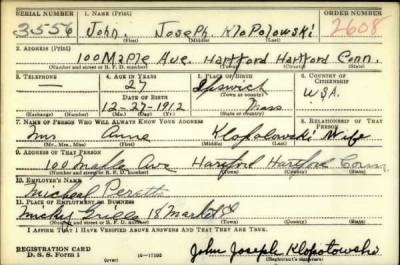 SERIAL NUMBER 1. NAME (Print) ORDER NUMBER
3556 John Joseph Klopotowski 2608
(First) (Middle) (Last)
2. ADDRESS (Print)
100 Maple Ave. Hartford Hartford Conn.
(Number and street or R. F. D. number) (Town) (County) (State)
3. TELEPHONE 4. AGE IN YEARS 5. PLACE OF BIRTH 6. COUNTRY OF CITIZENSHIP
— 27 Ipswich
DATE OF BIRTH (Town or county) USA.
12-27-1912 Mass
(Exchange) (Number) (Mo.) (Day) (Yr.) (State or country)
7. NAME OF PERSON WHO WILL ALWAYS KNOW YOUR ADDRESS 8. RELATIONSHIP OF THAT PERSON
Mrs. Anne Klopotowski Wife
(Mr., Mrs., Miss) (First) (Middle) (Last)
9. ADDRESS OF THAT PERSON
100 Maple Ave Hartford Hartford Conn
(Number and street or R. F. D. number) (Town) (County) (State)
10. EMPLOYER'S NAME
Micheal Peretta
11. PLACE OF EMPLOYMENT OR BUSINESS
Mickey Grille 18 Market St
(Number and street or R. F. D. number) (Town) (County) (State)
I AFFIRM THAT I HAVE VERIFIED ABOVE ANSWERS AND THAT THEY ARE TRUE.
REGISTRATION CARD
D. S. S. Form 1 (over) 16—17105 John Joseph Klopotowski
(Registrant's signature)